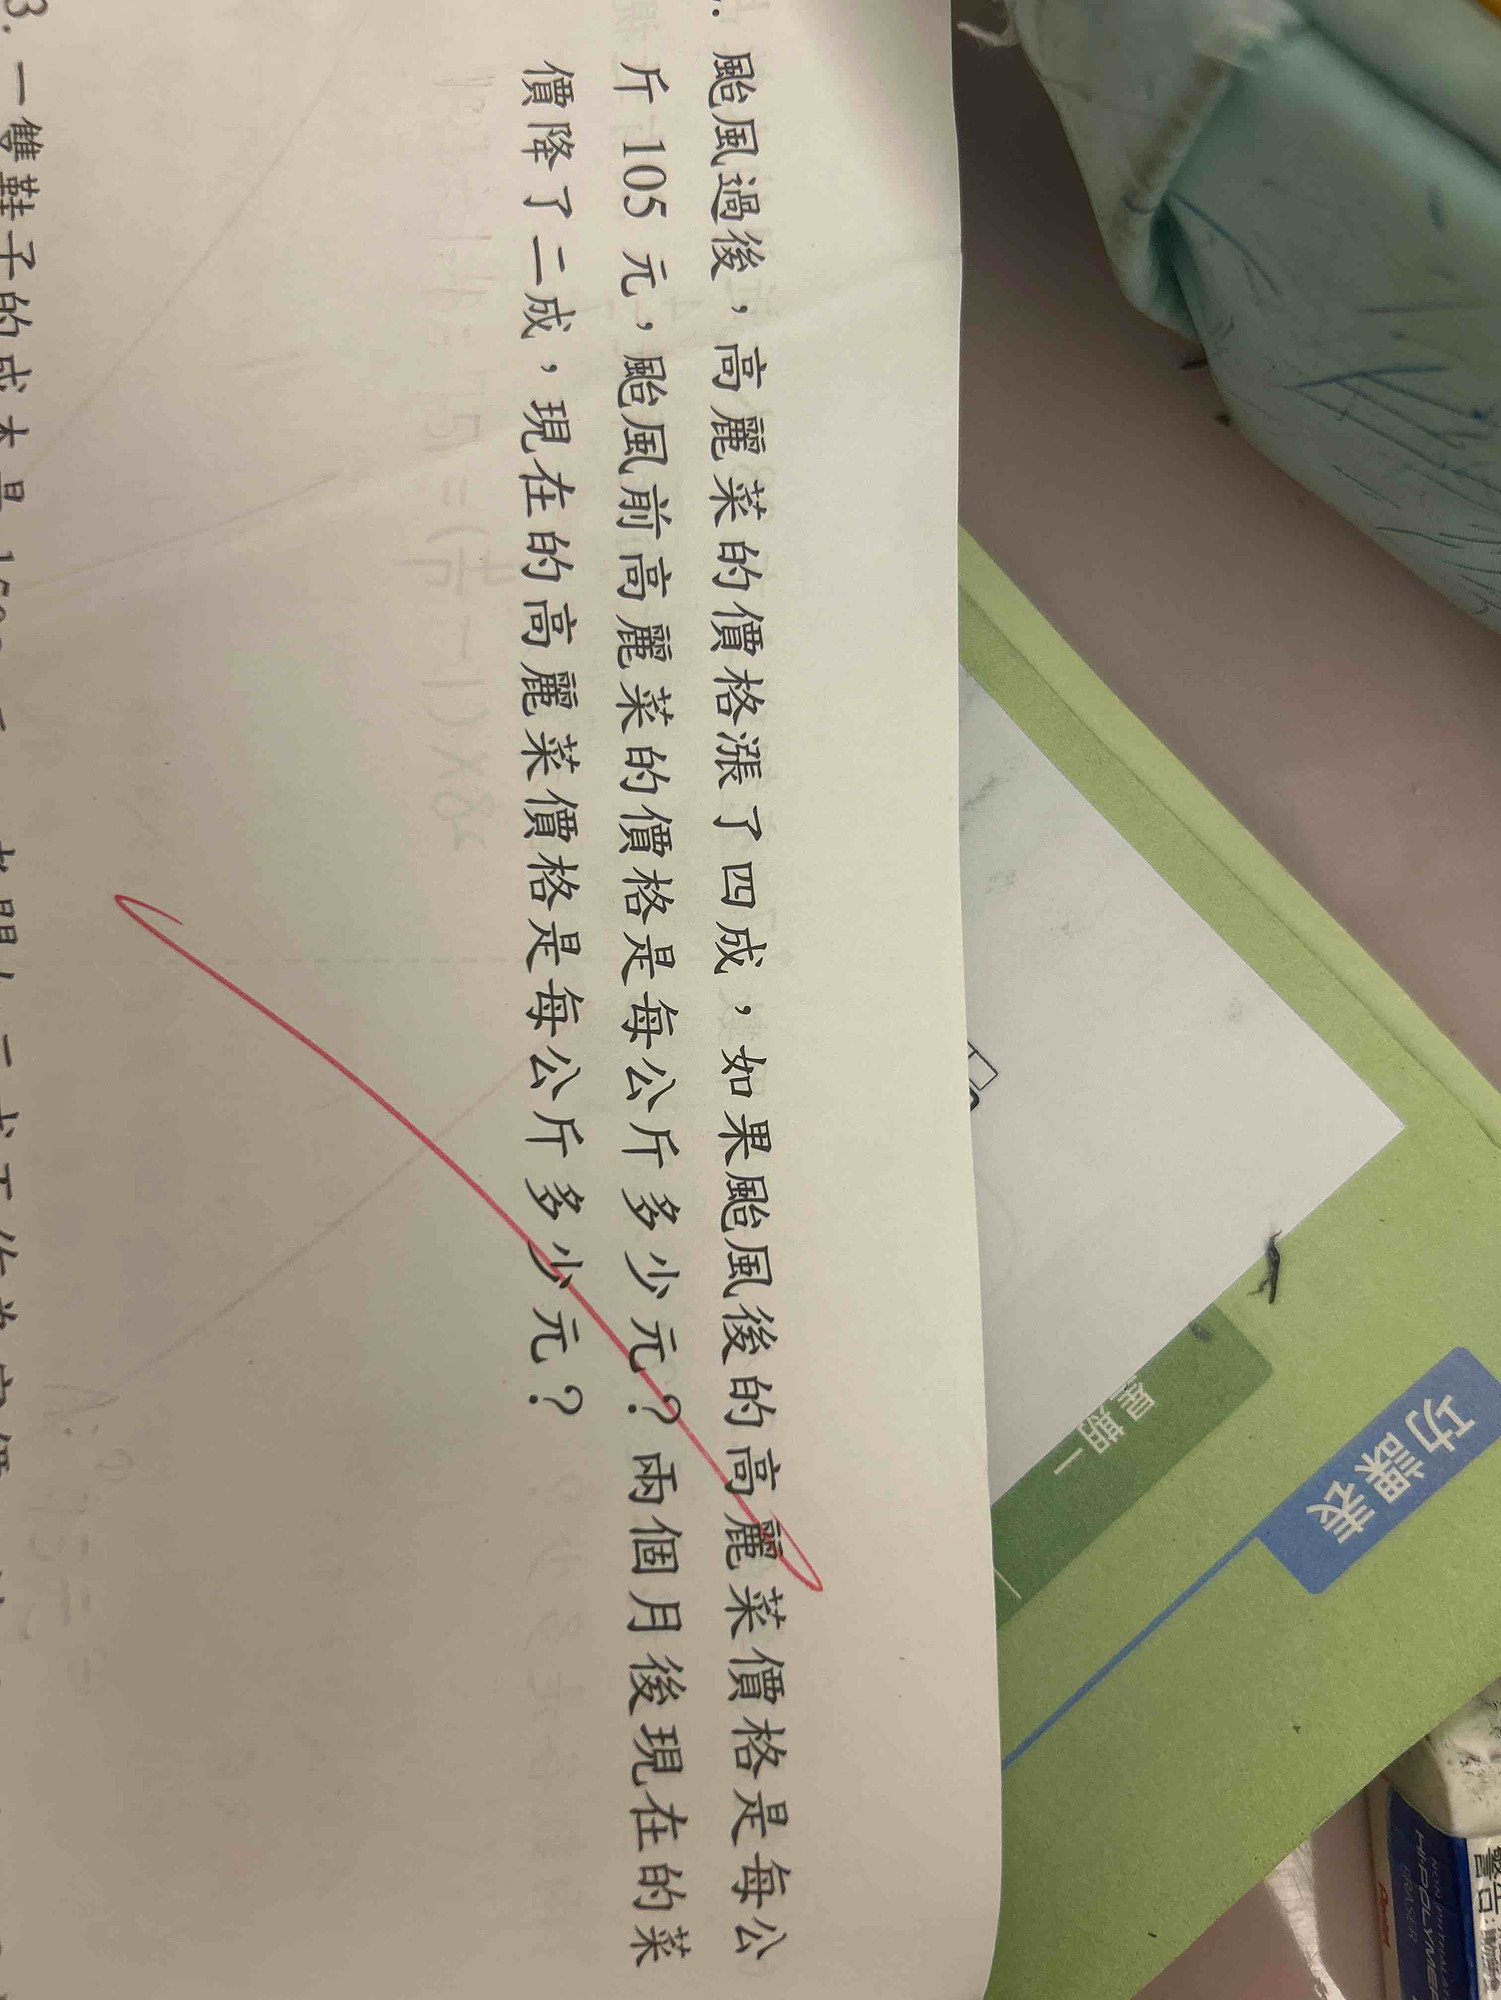 颱風過後，高麗菜的價格漲了四成，如果颱風後的高麗菜價格是每公
斤 105 元，颱風前高麗菜的價格是每公斤多少元？兩個月後現在的菜
價降了二成，現在的高麗菜價格是每公斤多少元？
3. 一雙鞋子的成本是
功課表
星期一
HI-POLYMER
ERASER
Pentel
警告